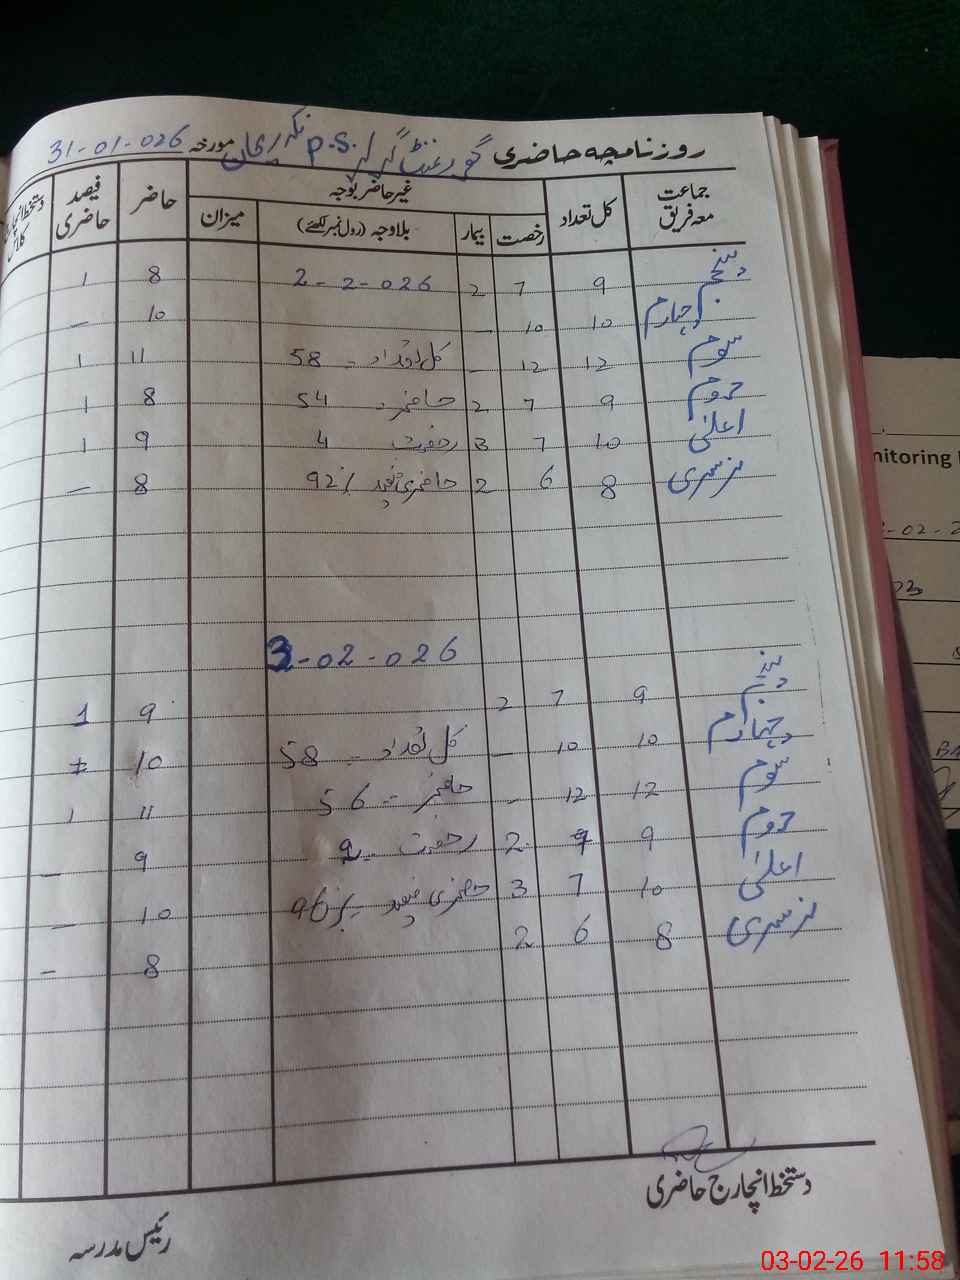 روزنامچہ حاضری گورنمنٹ گرلز P.S. ریحان مورخہ 31-01-026
جماعت معہ فریق کل تعداد غیر حاضر بوجہ حاضر فیصد حاضری دستخط انچارج کلاس
رخصت بیمار بلاوجہ (رول نمبر لکھئے) میزان
پنجم 9 7 2 2-2-026 8 1
چہارم 10 10 - 10 -
سوم 12 12 - کل تعداد - 58 11 1
دوم 9 7 2 حاضر - 54 8 1
اعلیٰ 10 7 3 رخصت 4 9 1
نرسری 8 6 2 حاضری فیصد 92% 8 -
3-02-026
پنجم 9 7 2 9 1
چہارم 10 10 - کل تعداد - 58 10
سوم 12 12 - حاضر - 56 11 1
دوم 9 7 2 رخصت - 2 9 -
اعلیٰ 10 7 3 حاضری فیصد 96% 10 -
نرسری 8 6 2 8 -
دستخط انچارج حاضری
رئیس مدرسہ
nitoring
-02-2
03
03-02-26 11:58